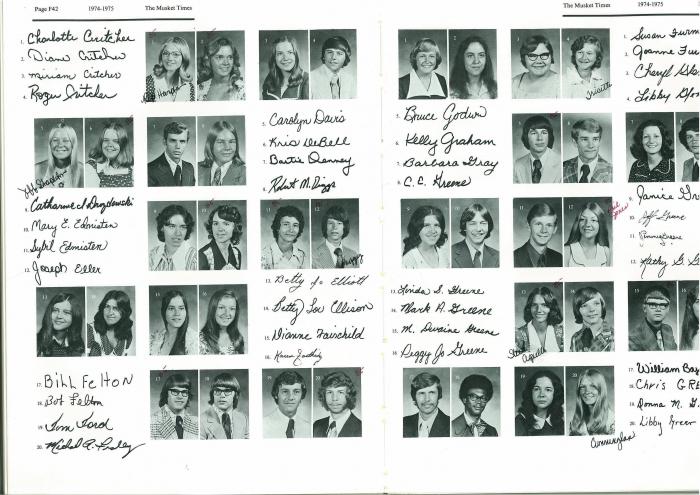 Page F42 1974-1975 The Musket Times
1. Charlotte Critcher
2. Diane Critcher
3. Miriam Critcher
4. Roger Critcher
5. Carolyn Davis
6. Kris DeBell
7. Denney
8. Robert M. Diggs
9. Catharine A Drozdowski
10. Mary E. Edmisten
11. Sybil Edmisten
12. Joseph Eller
13. Betty Jo Elliott
14. Betty Lou Ellison
15. Dianne Fairchild
16. Karen
17. Bill Felton
18. Bot Felton
19. Tom Ford
20. Michel A.
The Musket Times 1974-1975
1. Susan
2. Joanne
3. Cheryl
4. Libby
5. Bruce Godwin
6. Kelly Graham
7. Barbara Gray
8. C. C. Greene
9. Janice Gr
10. Jeff Greene
11. Greene
12. Kathy G. G
13. Linda S. Greene
14. Mark A. Greene
15. M. Dwaine Greene
16. Peggy Jo Greene
17. William Bay
18. Chris GRE
19. Donna M. G.
20. Libby Greer